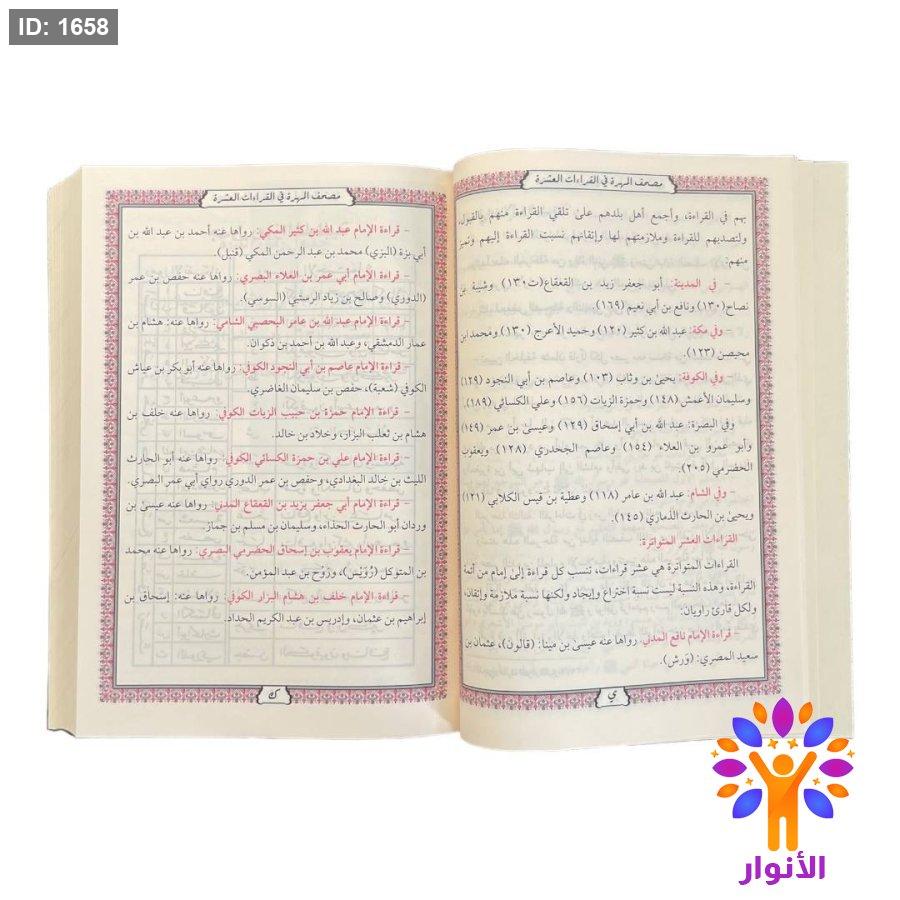 ID: 1658
مصحف المهرة في القراءات العشرة
بهم في القراءة، وأجمع أهل بلدهم على تلقي القراءة منهم بالقبول،
ولتصديهم للقراءة وملازمتهم لها وإتقانهم نسبت القراءة إليهم وتميز
منهم:
- في المدينة: أبو جعفر زيد بن القعقاع(ت١٣٠) وشيبة بن
نصاح(١٣٠) ونافع بن أبي نعيم (١٦٩).
- وفي مكة: عبد الله بن كثير (١٢٠) وحميد الأعرج (١٣٠) ومحمد ابن
محيصن (١٢٣).
- وفي الكوفة: يحيىٰ بن وثاب (١٠٣) وعاصم بن أبي النجود (١٢٩)
وسليمان الأعمش (١٤٨) وحمزة الزيات (١٥٦) وعلي الكسائي (١٨٩).
وفي البصرة: عبد الله بن أبي إسحاق (١٢٩) وعيسىٰ بن عمر (١٤٩)
وأبو عمرو بن العلاء (١٥٤) وعاصم الجحدري (١٢٨) ويعقوب
الحضرمي (٢٠٥).
- وفي الشام: عبد الله بن عامر (١١٨) وعطية بن قيس الكلابي (١٢١)
ويحيىٰ بن الحارث الذماري (١٤٥).
القراءات العشر المتواترة:
القراءات المتواترة هي عشر قراءات، تنسب كل قراءة إلىٰ إمام من أئمة
القراءة، وهذه النسبة ليست نسبة اختراع وإيجاد ولكنها نسبة ملازمة وإتقان،
ولكل قارئ راويان:
- قراءة الإمام نافع المدني. رواها عنه عيسىٰ بن مينا: (قالون)، عثمان بن
سعيد المصري: (وَرش).
ي
مصحف المهرة في القراءات العشرة
- قراءة الإمام عبد الله بن كثير المكي: رواها عنه أحمد بن عبد الله بن
أبي بزة (البزي) محمد بن عبد الرحمن المكي (قنبل).
- قراءة الإمام أبي عمر بن العلاء البصري: رواها عنه حفص بن عمر
(الدوري) وصالح بن زياد الرستبي (السوسي).
- قراءة الإمام عبد الله بن عامر اليحصبي الشامي: رواها عنه: هشام بن
عمار الدمشقي، وعبد الله بن أحمد بن ذكوان.
- قراءة الإمام عاصم بن أبي النجود الكوفي: رواها عنه أبو بكر بن عياش
الكوفي (شعبة)، حفص بن سليمان الغاضري.
- قراءة الإمام حمزة بن حبيب الزيات الكوفي: رواها عنه خلف بن
هشام بن ثعلب البزار، وخلاد بن خالد.
- قراءة الإمام علي بن حمزة الكسائي الكوفي: رواها عنه أبو الحارث
الليث بن خالد البغدادي، وحفص بن عمر الدوري رواي أبي عمر البصري.
- قراءة الإمام أبي جعفر يزيد بن القعقاع المدني: رواها عنه عيسىٰ بن
وردان أبو الحارث الحذاء، وسليمان بن مسلم بن جماز.
- قراءة الإمام يعقوب بن إسحاق الحضرمي البصري: رواها عنه محمد
بن المتوكل (رُوَيْس)، ورَوْح بن عبد المؤمن.
- قراءة الإمام خلف بن هشام البزار الكوفي: رواها عنه: إسحاق بن
إبراهيم بن عثمان، وإدريس بن عبد الكريم الحداد.
ك
الأنوار